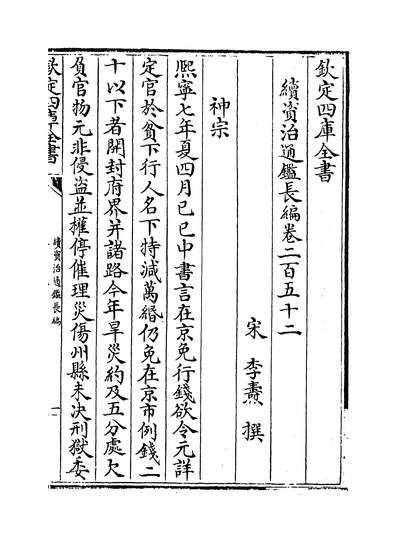 欽定四庫全書
續資治通鑑長編卷二百五十二
宋 李燾 撰
神宗
熈寧七年夏四月己巳中書言在京免行錢欲令元詳
定官於貧下行人名下特減萬緡仍免在京市例錢二
十以下者開封府界并諸路今年旱災約及五分處欠
負官物元非侵盜並權停催理災傷州縣未决刑獄委
欽定四庫全書
續資治通鑑長編
一